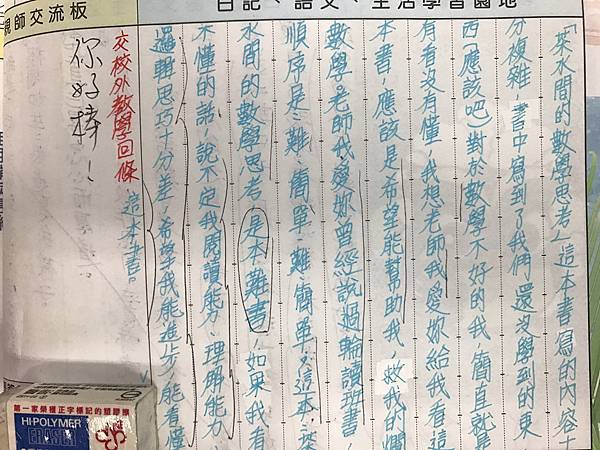 親師交流板
日記、語文、生活學習園地
「茶水間的數學思考」這本書寫的內容十
分複雜 書中寫到了我們還沒學到的東
西(應該吧)對於數學不好的我,簡直就是
有看沒有懂,我想老師我愛妳給我看這
本書,應該是希望能幫助我,救我的爛
數學。老師我愛妳曾經說過輪讀班書,
順序是:難、簡單、難、簡單…,這本:茶
水間的數學思考 是本難書,如果我看
不懂的話,說不定我閱讀能力、理解能力、
邏輯思巧十分差,希望我能進步,能看懂
這本書。
交校外教學回條
你好棒!
第一家榮獲正字標記的塑膠擦
HI-POLYMER
ERASER